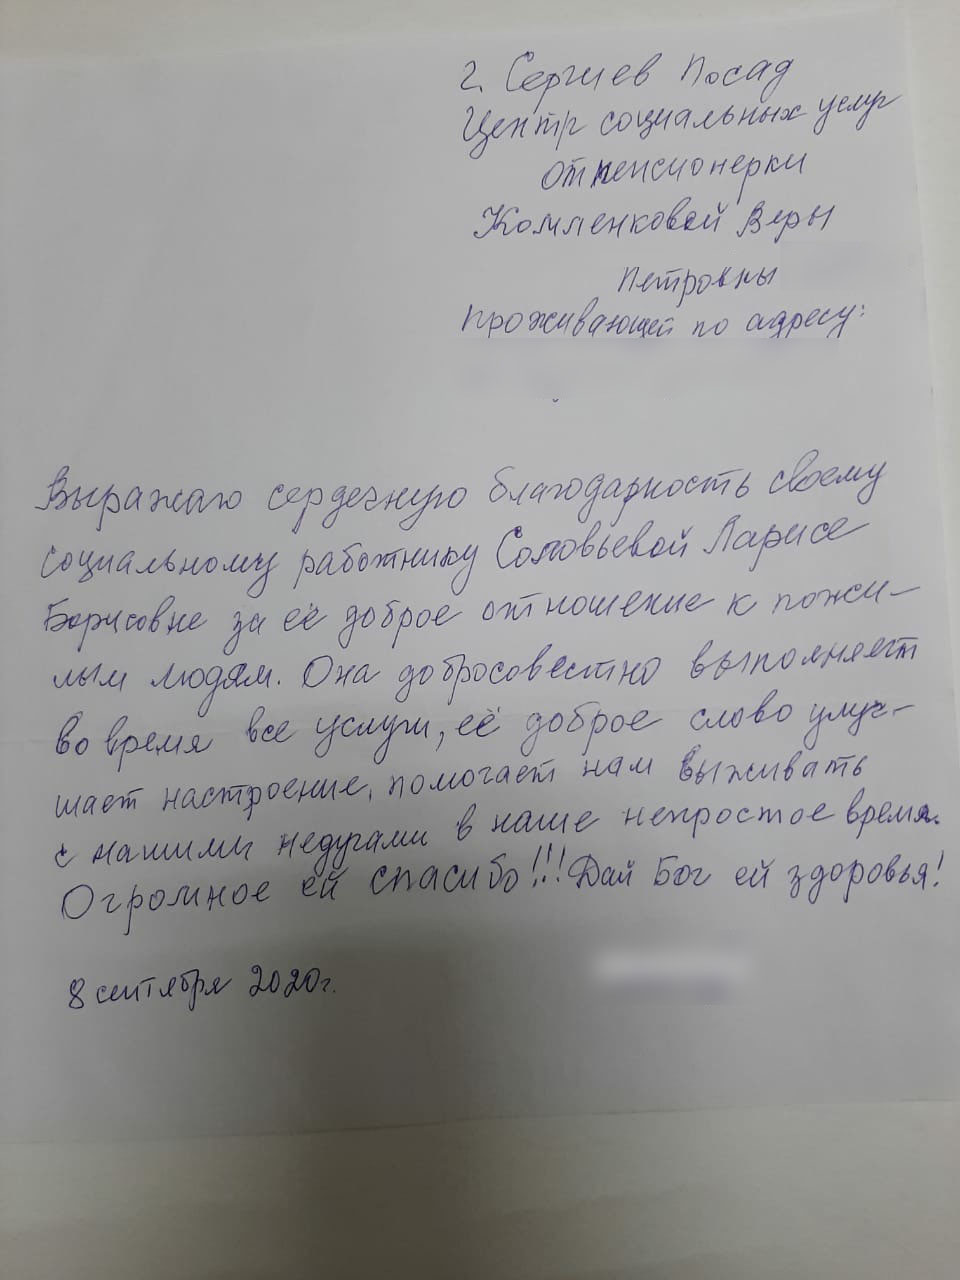 г. Сергиев Посад
Центр социальных услуг
от пенсионерки
Комленковой Веры
Петровны
проживающей по адресу:
Выражаю сердечную благодарность своему
социальному работнику Соловьевой Ларисе
Борисовне за её доброе отношение к пожи-
лым людям. Она добросовестно выполняет
во время все услуги, её доброе слово улуч-
шает настроение, помогает нам выживать
с нашими недугами в наше непростое время.
Огромное ей спасибо!!! Дай Бог ей здоровья!
8 сентября 2020г.